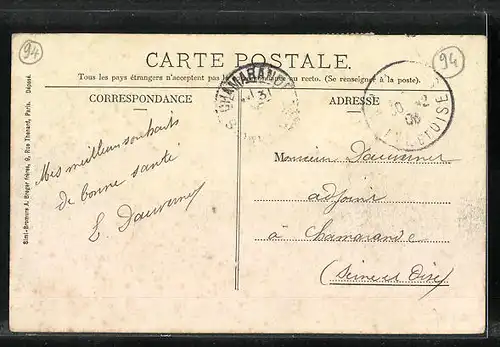 94
94
CARTE POSTALE.
Tous les pays étrangers n'acceptent pas la correspondance au recto. (Se renseigner à la poste).
CORRESPONDANCE
ADRESSE
CHAMARANDE
31
SEINE-ET-OISE
Mes meilleurs souhaits
de bonne santé
L. Dauverne
Monsieur Dauverne
adjoint
à Chamarande
(Seine et Oise)
Simi-Bromure A. Breger frères, 9, Rue Thenard, Paris. Déposé.